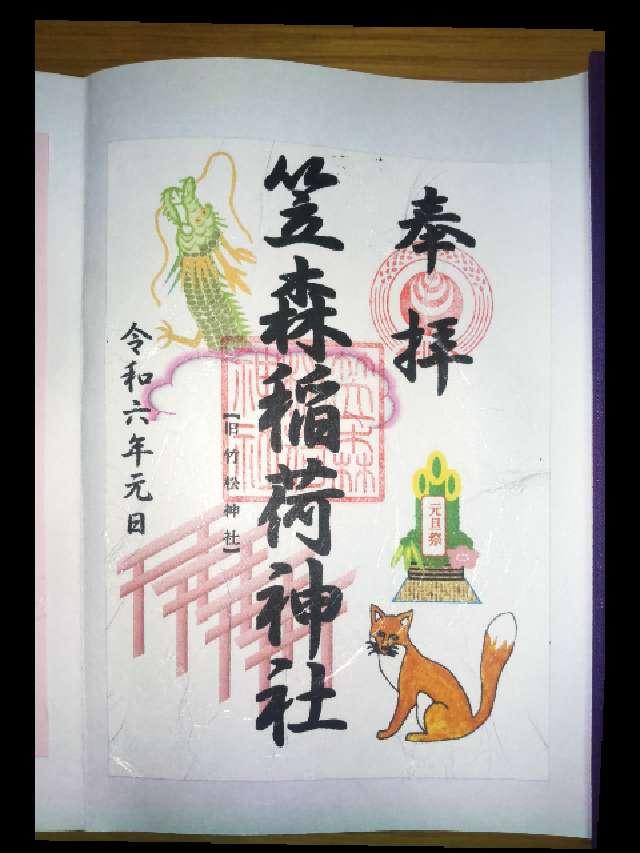 奉拝
笠森稲荷神社
【旧竹松神社】
令和六年元日
元旦祭